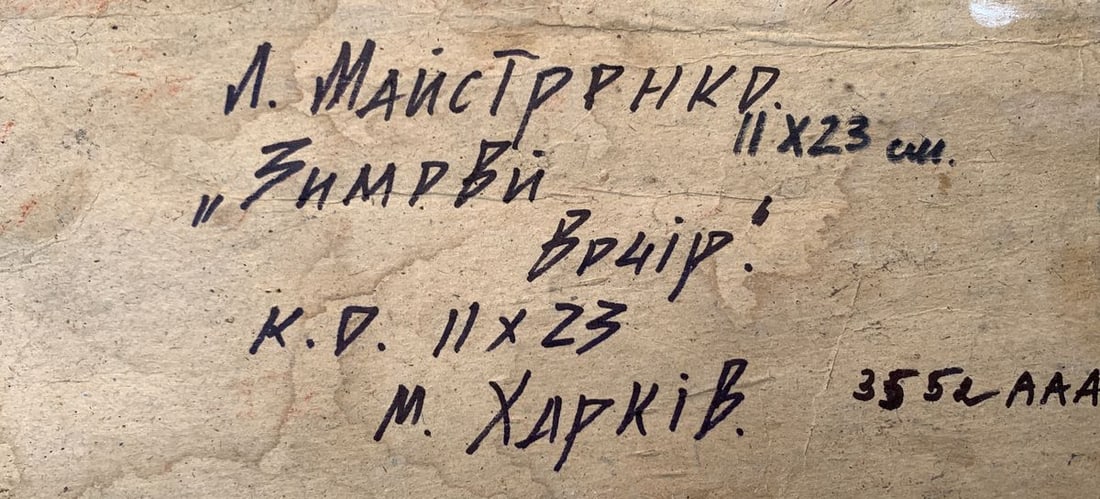 Л. Майстренко.
11 х 23 см.
„Зимовй
вечір".
К.О. 11 х 23
м. Харків.
3552 ААА